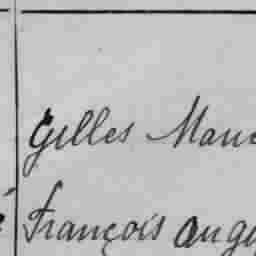 Gilles Mau
François Aug